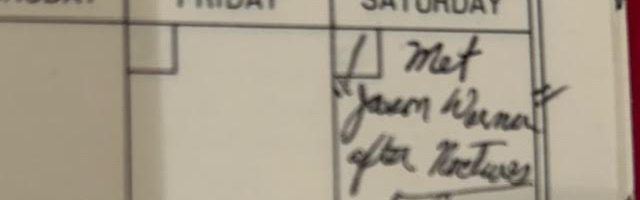 FRIDAY SATURDAY
1 Met
"Jason Werner
after Noctures